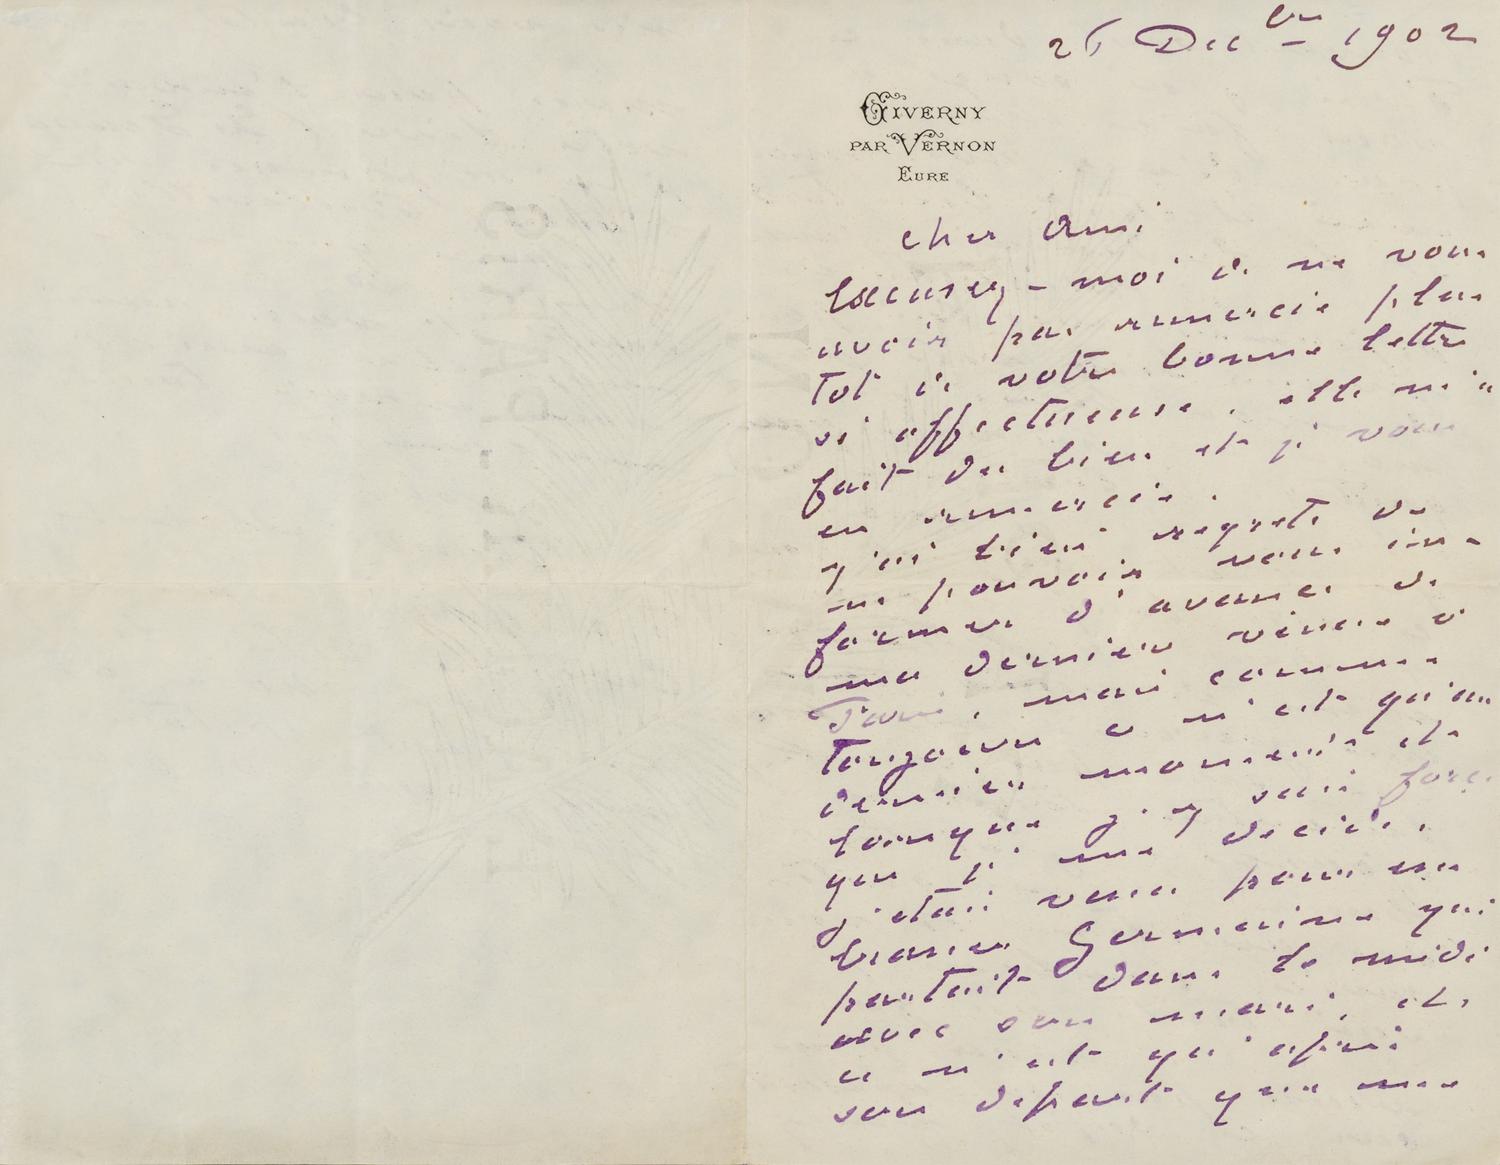 26 Dec bre 1902
GIVERNY
PAR VERNON
EURE
cher Ami
Excusez-moi de ne vous
avoir pas remercié plus
tot de votre bonne lettre
si affectueuse. elle m'a
fait du bien et je vous
en remercie.
j'ai bien regretté de
ne pouvoir vous in-
former d'avance de
ma dernière venue à
Paris, mais comme
toujours ce n'est qu'au
dernier moment et
lorsque j'y suis forcé
que je me décide.
j'étais venu pour em
brasser Germaine qui
partait dans le midi
avec son mari, et
ce n'est qu'après
son départ que me